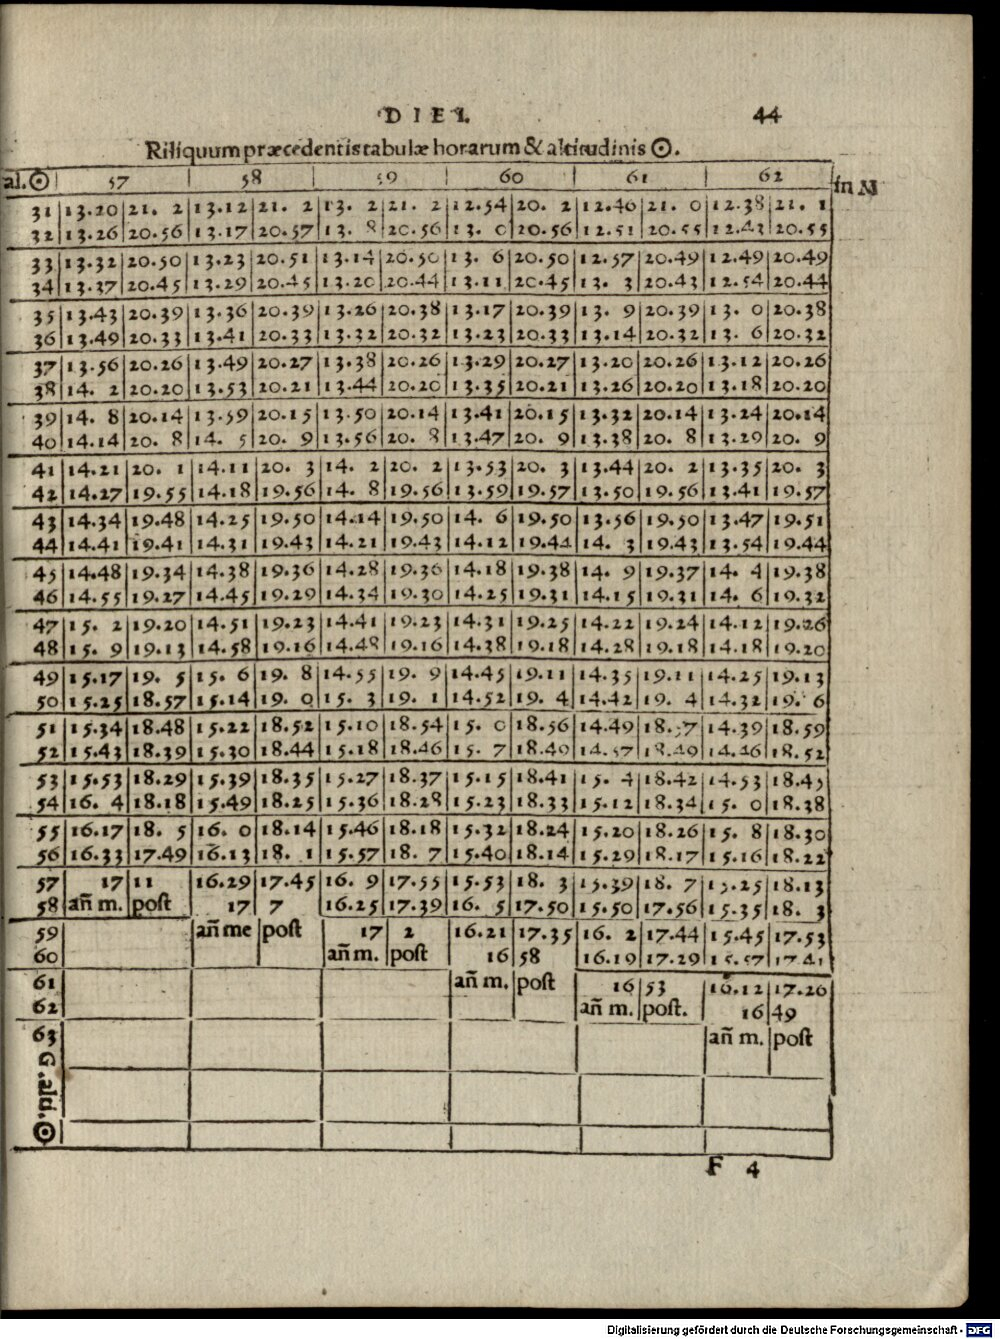 DIEI. 44
Riliquum præcedentis tabulæ horarum & altitudinis ☉.
al.☉ 57 58 59 60 61 62 in M
31 13.20 21. 2 13.12 21. 2 13. 2 21. 2 12.54 20. 2 12.46 21. 0 12.38 21. 1
32 13.26 20.56 13.17 20.57 13. 8 20.56 13. 0 20.56 12.51 20.55 12.43 20.55
33 13.32 20.50 13.23 20.51 13.14 20.50 13. 6 20.50 12.57 20.49 12.49 20.49
34 13.37 20.45 13.29 20.45 13.20 20.44 13.11 20.45 13. 3 20.43 12.54 20.44
35 13.43 20.39 13.36 20.39 13.26 20.38 13.17 20.39 13. 9 20.39 13. 0 20.38
36 13.49 20.33 13.41 20.33 13.32 20.32 13.23 20.33 13.14 20.32 13. 6 20.32
37 13.56 20.26 13.49 20.27 13.38 20.26 13.29 20.27 13.20 20.26 13.12 20.26
38 14. 2 20.20 13.53 20.21 13.44 20.20 13.35 20.21 13.26 20.20 13.18 20.20
39 14. 8 20.14 13.59 20.15 13.50 20.14 13.41 20.15 13.32 20.14 13.24 20.14
40 14.14 20. 8 14. 5 20. 9 13.56 20. 8 13.47 20. 9 13.38 20. 8 13.29 20. 9
41 14.21 20. 1 14.11 20. 3 14. 2 20. 2 13.53 20. 3 13.44 20. 2 13.35 20. 3
42 14.27 19.55 14.18 19.56 14. 8 19.56 13.59 19.57 13.50 19.56 13.41 19.57
43 14.34 19.48 14.25 19.50 14.14 19.50 14. 6 19.50 13.56 19.50 13.47 19.51
44 14.41 19.41 14.31 19.43 14.21 19.43 14.12 19.44 14. 3 19.43 13.54 19.44
45 14.48 19.34 14.38 19.36 14.28 19.36 14.18 19.38 14. 9 19.37 14. 4 19.38
46 14.55 19.27 14.45 19.29 14.34 19.30 14.25 19.31 14.15 19.31 14. 6 19.32
47 15. 2 19.20 14.51 19.23 14.41 19.23 14.31 19.25 14.22 19.24 14.12 19.26
48 15. 9 19.13 14.58 19.16 14.48 19.16 14.38 19.18 14.28 19.18 14.18 19.20
49 15.17 19. 5 15. 6 19. 8 14.55 19. 9 14.45 19.11 14.35 19.11 14.25 19.13
50 15.25 18.57 15.14 19. 0 15. 3 19. 1 14.52 19. 4 14.42 19. 4 14.32 19. 6
51 15.34 18.48 15.22 18.52 15.10 18.54 15. 0 18.56 14.49 14.39 18.59
52 15.43 18.39 15.30 18.44 15.18 18.46 15. 7 18.49 14.57 18.49 14.46 18.52
53 15.53 18.29 15.39 18.35 15.27 18.37 15.15 18.41 15. 4 18.42 14.53 18.45
54 16. 4 18.18 15.49 18.25 15.36 18.28 15.23 18.33 15.12 18.34 15. 0 18.38
55 16.17 18. 5 16. 0 18.14 15.46 18.18 15.32 18.24 15.20 18.26 15. 8 18.30
56 16.33 17.49 16.13 18. 1 15.57 18. 7 15.40 18.14 15.29 18.17 15.16 18.22
57 17 11 16.29 17.45 16. 9 17.55 15.53 18. 3 15.39 18. 7 15.25 18.13
58 añ m. post 17 7 16.25 17.39 16. 5 17.50 15.50 17.56 15.35 18. 3
59 añ me post 17 2 16.21 17.35 16. 2 17.44 15.45 17.53
60 añ m. post 16 58 16.19 17.29 15.57 17.41
61 añ m. post 16 53 16.12 17.26
62 añ m. post. 16 49
63 añ m. post
G. ald. ☉
F 4
Digitalisierung gefördert durch die Deutsche Forschungsgemeinschaft - DFG